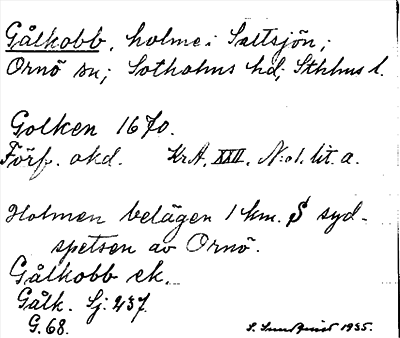 Gålkobb, holme i Saltsjön;
Ornö sn; Sotholms hd; Sthlms l.
Golken 1670.
Förf. okd. KrA. XXII, N:o 1. lit. a.
Holmen belägen 1 km. S syd-
spetsen av Ornö.
Gålkobb ek.
Gålk. Sj. 237.
G. 68.
S. Lundquist 1935.